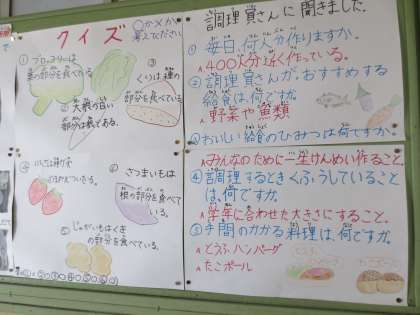 クイズ
○か×か
考えてください
① ブロッコリーは
葉の部分を食べている
② 大根の白い
部分は根である。
③
くりは種の
部分を食べている
⑤ さつまいもは
根の部分を食べて
いる。
⑥ じゃがいもはくき
の部分を食べている。
調理員さんに聞きました。
① 毎日、何人分作りますか。
A 400人分近く作っている。
② 調理員さんが、おすすめする
給食は、何ですか。
A 野菜や魚類
③ おいしい給食のひみつは何ですか。
A みんなのために一生けんめい作ること。
④ 調理するときくふうしていること
は、何ですか。
A 学年に合わせた大きさにすること。
⑤ 手間のかかる料理は、何ですか。
A とうふハンバーグ
A たこボール